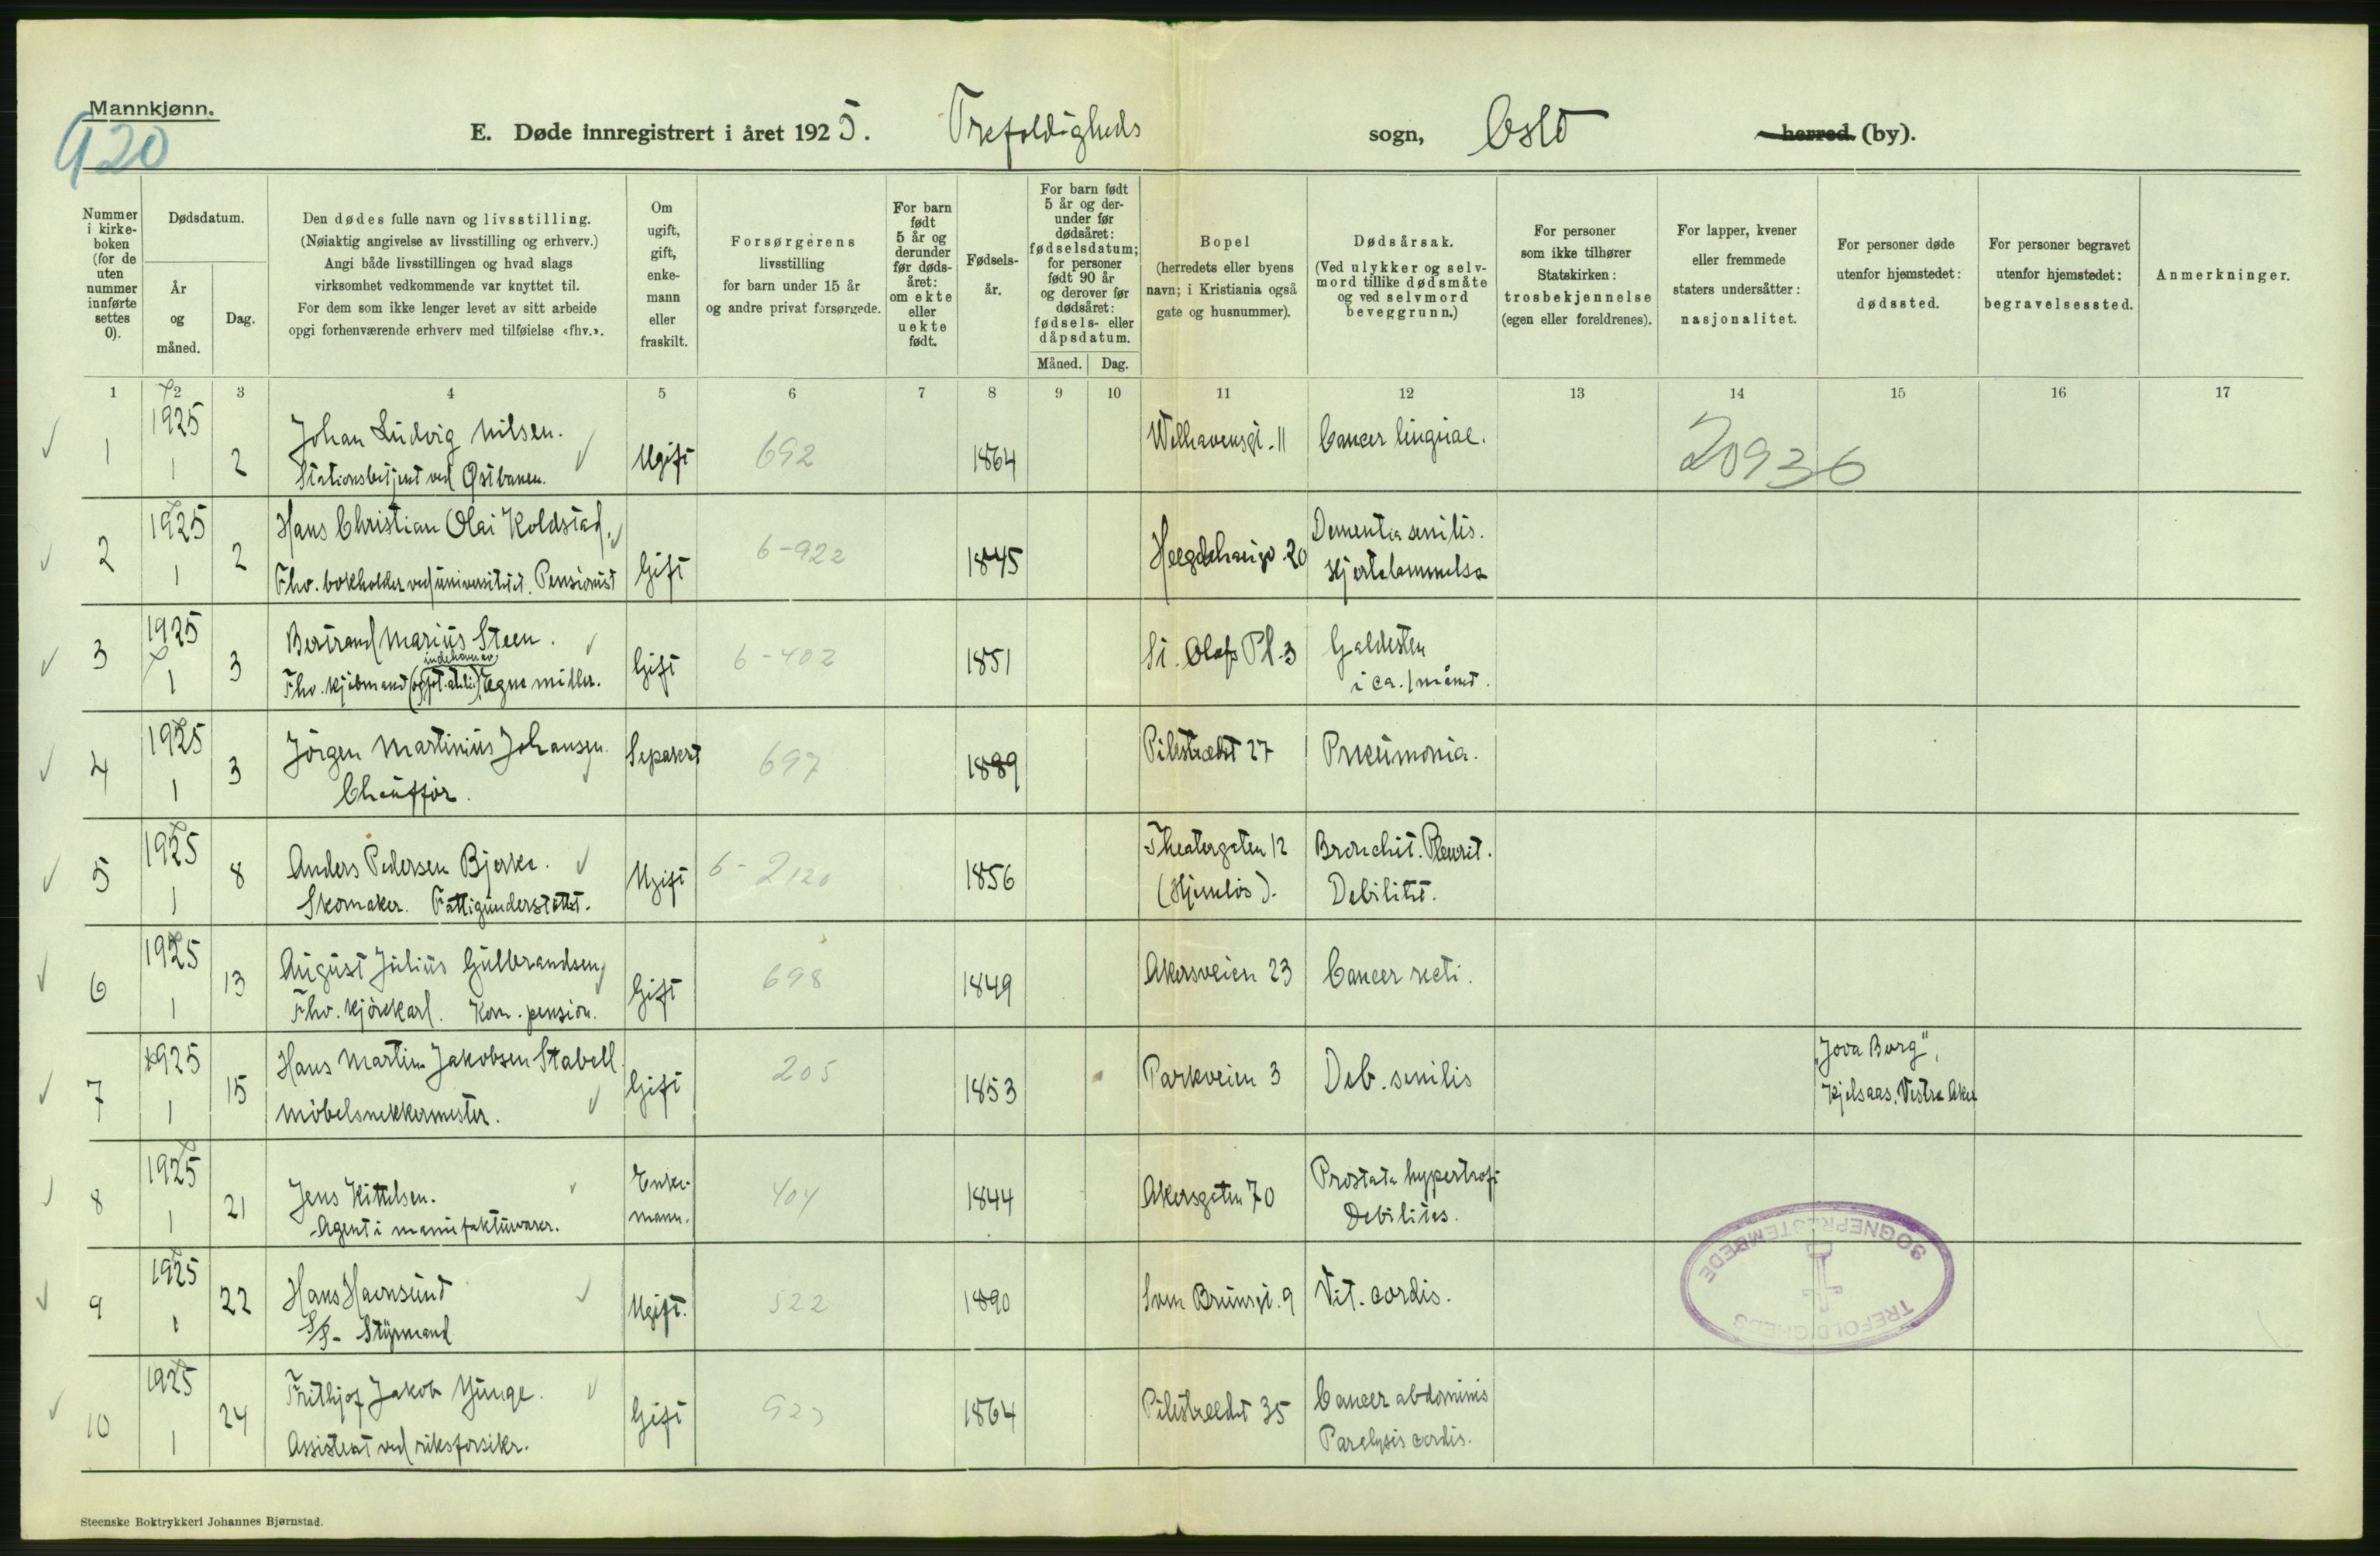 Mannkjønn.
920
E. Døde innregistrert i året 1925. Trefoldigheds sogn, Oslo herred (by).
Nummer i kirke-boken (for de uten nummer innførte settes 0).
Dødsdatum.
År og måned.
Dag.
Den dødes fulle navn og livsstilling.
(Nøiaktig angivelse av livsstilling og erhverv.)
Angi både livsstillingen og hvad slags
virksomhet vedkommende var knyttet til.
For dem som ikke lenger levet av sitt arbeide
opgi forhenværende erhverv med tilføielse «fhv.».
Om ugift, gift, enke-mann eller fraskilt.
Forsørgerens
livsstilling
for barn under 15 år
og andre privat forsørgede.
For barn født 5 år og derunder før døds-året: om ekte eller uekte født.
Fødsels-år.
For barn født 5 år og der-under før dødsåret: fødselsdatum; for personer født 90 år og derover før dødsåret: fødsels- eller dåpsdatum.
Måned. Dag.
Bopel
(herredets eller byens
navn; i Kristiania også
gate og husnummer).
Dødsårsak.
(Ved ulykker og selv-
mord tillike dødsmåte
og ved selvmord
beveggrunn.)
For personer
som ikke tilhører
Statskirken:
trosbekjennelse
(egen eller foreldrenes).
For lapper, kvener
eller fremmede
staters undersåtter:
nasjonalitet.
For personer døde
utenfor hjemstedet:
dødssted.
For personer begravet
utenfor hjemstedet:
begravelsessted.
Anmerkninger.
1 2 3 4 5 6 7 8 9 10 11 12 13 14 15 16 17
1 1925 1 2 Johan Ludvig Nilsen. Ugift 692 1864 Welhavensgt. 11 Cancer linguae. 20936
Stationsbetjent ved Østbanen.
2 1925 1 2 Hans Christian Olai Koldstad. Gift 6-922 1845 20 Dementia senilis.
Fhv. bokholder ved universitetet. Pensionist Hjertelammelse
3 1925 1 3 Bertrand Marius Steen. Gift 6-402 1851 St. Olafs Pl. 3 Galdesten
indehaver av
Fhv. kjøbmand Egne midler. i ca. 1 måned.
4 1925 1 3 Jörgen Martinius Johansen. Separert 697 1889 Pilestrædet 27 Pneumonia.
Chauffør.
5 1925 1 8 Anders Pedersen Bjerke. Ugift 6-2120 1856 Theatergaten 12 Bronchit. Pleurit.
Skomaker. Fattigunderstøttet. (Hjemløs). Debilitet.
6 1925 1 13 August Julius Gulbrandsen, Gift 698 1849 Akersveien 23 Cancer recti.
Fhv. kjørekarl. Kom. pension.
7 1925 1 15 Hans Martin Jakobsen Stabell Gift 205 1853 Parkveien 3 Deb. senilis "Jova Borg",
Møbelsnekkermester. Kjelsaas, Vestre Aker
8 1925 1 21 Jens Kittelsen. Enke-mann. 404 1844 Akersgaten 70 Prostata hypertrofi
Agent i manufakturvarer. Debilitas.
9 1925 1 22 Hans Havnsund Ugift. 522 1890 Brunsgt. 9 Vit. cordis.
Styrmand
10 1925 1 24 Frithjof Jakob Yunge. Gift 1864 Pilestrædet 35 Cancer abdominis
Assistent ved riksforsikr. Paralysis cordis.
SOGNEPRESTEMBEDE
TREFOLDIGHEDS
Steenske Boktrykkeri Johannes Bjørnstad.